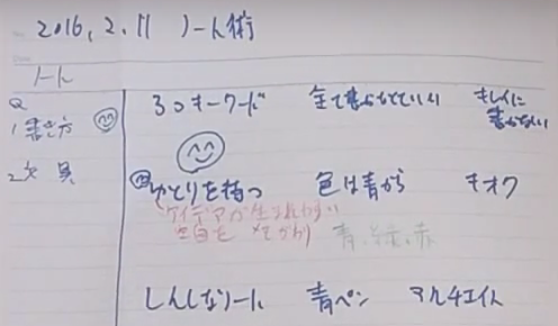 2016, 2, 11 ノート術
ノート
Q
1 書き方
2 文具
3つキーワード 全て書かなくていい キレイに
書かない
ゆとりを持つ 色は青から キオク
アイデアが生まれやすい
空白を
青、緑、赤
しんしなノート 青ペン マルチエイト